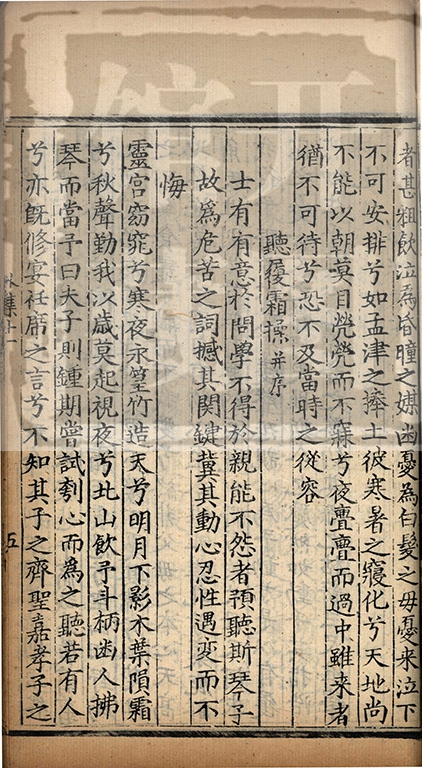 者甚粗飲泣爲昏瞳之媒幽憂為白髮之毋憂来泣下
不可安排兮如孟津之捧土彼寒暑之寖化兮天地尚
不能以朝莫目煢煢而不寐兮夜亹亹而過中雖来者
猶不可待兮恐不及當時之從容
聽履霜操并序
士有有意扵問學不得於親能不怨者預聽斯琴予
故爲危苦之詞撼其関鍵冀其動心忍性遇变而不
悔
靈宫窈窕兮寒夜永篁竹造天兮明月下影木葉隕霜
兮秋聲動我以歲莫起視夜兮北山飲予斗柄幽人拂
琴而當予曰夫子則鍾期嘗試刳心而為之聽若有人
兮亦既修宴衽席之言兮不知其子之齊聖嘉孝子之
集十一
五